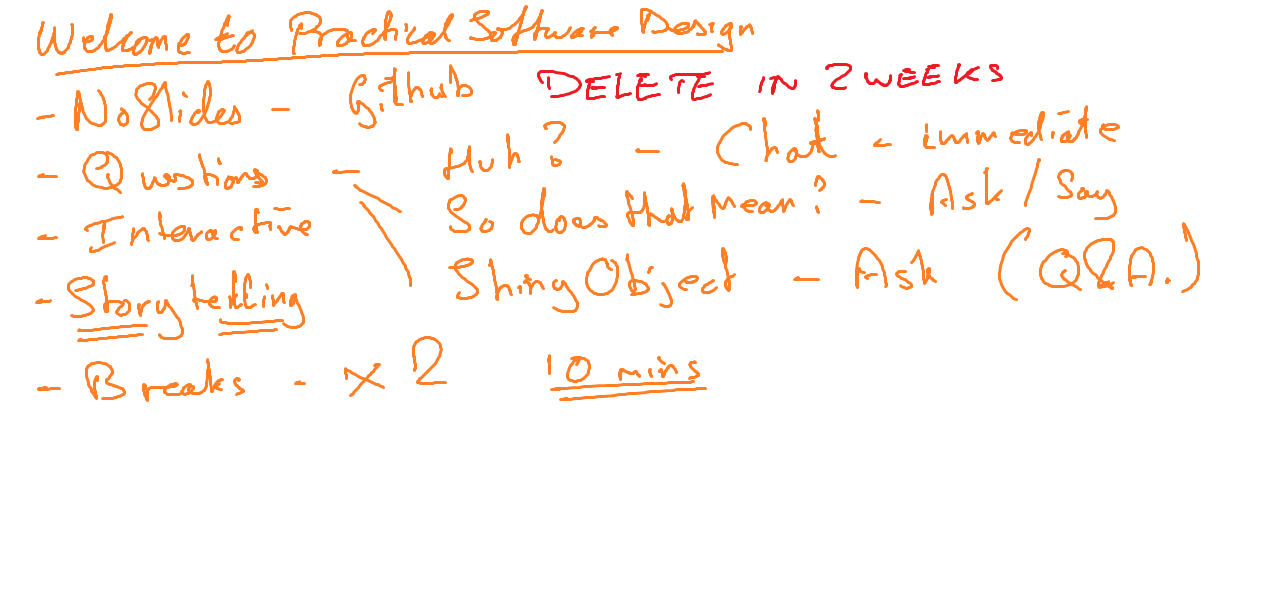 Welcome to Practical Software Design
- No Slides - Github DELETE IN 2 WEEKS
- Questions - Huh? - Chat - immediate
So does that mean? - Ask / Say
- Interactive
Shiny Object - Ask (Q&A.)
- Story telling
- Breaks - x 2 10 mins